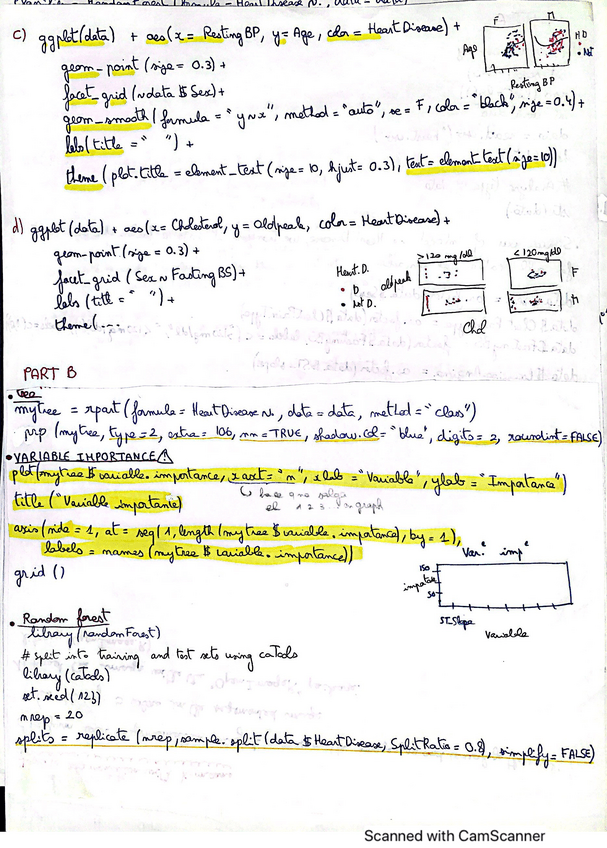 c) ggplot(data) + aes(x = RestingBP, y = Age, color = HeartDisease) +
geom_point (size = 0.3) +
facet_grid (~data$Sex) +
geom_smooth (formula = "y~x", method = "auto", se = F, color = "black", size = 0.4) +
labs (title = " ") +
theme (plot.title = element_text (size = 10, hjust = 0.3), text = element_text (size = 10))
F M
Age
HD
Not
Resting BP
d) ggplot(data) + aes(x = Cholesterol, y = Oldpeak, color = HeartDisease) +
geom_point (size = 0.3) +
facet_grid (Sex ~ FastingBS) +
labs (title = " ") +
theme (...
>120 mg/dl <120mg/dl
Heart.D.
D
Not D.
oldpeak
F
M
Chol
PART B
• Tree
mytree = rpart (formula = HeartDisease ~., data = data, method = "class")
prp (mytree, type = 2, extra = 106, nn = TRUE, shadow.col = "blue", digits = 2, roundint = FALSE)
• VARIABLE IMPORTANCE
plot (mytree$variable.importance, xaxt = "n", xlab = "Variable", ylab = "Importance")
hace que salga
el 1 2 3 graph
title ("Variable importante)
axis (side = 1, at = seq (1, length (mytree$variable.importance), by = 1),
labels = names (mytree$variable.importance))
grid ()
Var. imp
150
importance
50
ST.Slope
Variable
• Random forest
library (randomForest)
# Split into training and test sets using caTools
library (caTools)
set.seed (123)
nrep = 20
splits = replicate (nrep, sample.split (data$HeartDisease, SplitRatio = 0.8), simplify = FALSE)
Scanned with CamScanner